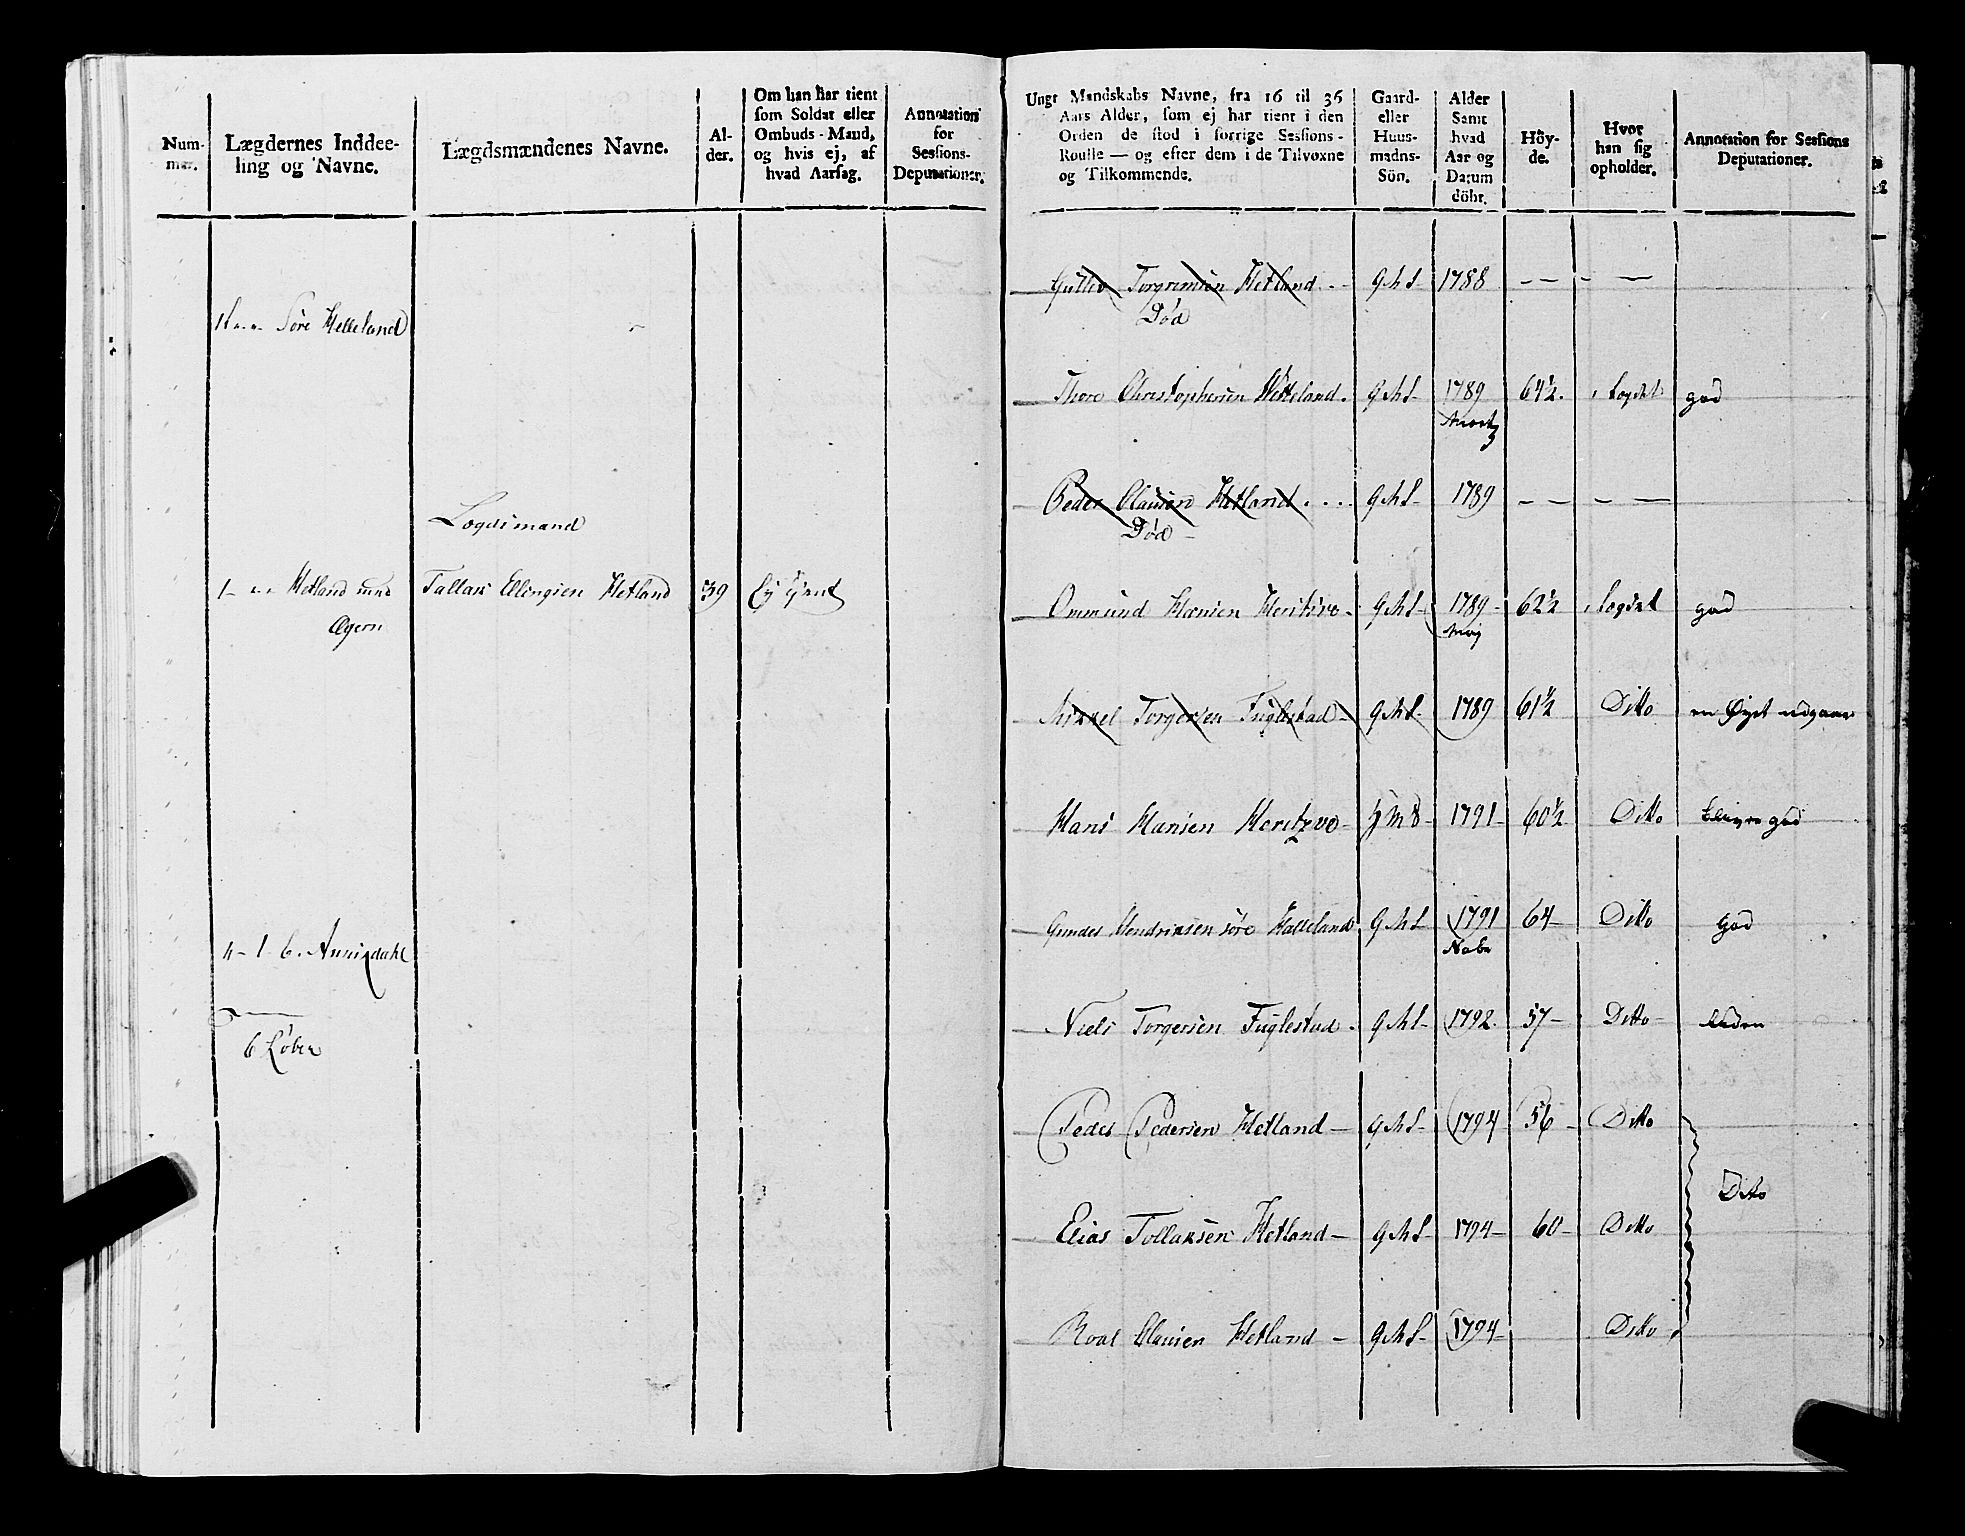 Num-
mer.
Lægdernes Inddee-
ling og Navne.
Lægdsmændenes Navne.
Al-
der.
Om han har tient
som Soldat eller
Ombuds-Mand,
og hvis ej, af
hvad Aarsag.
Annotation
for
Sessions-
Deputationer.
Søre Helleland
Logdsmand
1 - Hetland und Tallak Ellingsen Hetland 39 Ej tient
Øgern
4 - 1 6. Aunisdahl
Ungt Mandskabs Navne, fra 16 til 36
Aars Alder, som ej har tient i den
Orden de stod i forrige Sessions-
Roulle — og efter dem i de Tilvoxne
og Tilkommende.
Gaard-
eller
Huus-
mands-
Sön.
Alder
Samt
hvad
Aar og
Datum
döbt.
Höy-
de.
Hvor
han sig
opholder.
Annotation for Sessions
Deputationer.
Torgrimsen Hetland G M S 1788 — — - —
Død
Thore Christophersen Helleland. G M S- 1789 64½. i Logdet god
Peder Olausen Hetland . . . . G M S- 1789 — — - —
Død -
Ommund Hansen G M S- 1789- 62½ i Logdet god
Maj
Mikkel Torgersen Fuglestad - G M S- 1789 61½ Ditto en Øyet udgaar
Hans Hansen Heritzvo- H M S- 1791- 60½ Ditto god
Gundes Hendriksen søre Halleland G M S 1791 64- Ditto God
Niels Torgersen Fuglestad. G M S- 1792. 57- Ditto- liden
Peder Pedersen Hetland — G M S- 1794 56- Ditto
Ditto
Elias Tollaksen Hetland — G M S- 1794- 60- Ditto
Roal Olausen Hetland — G M S- 1794- Ditto